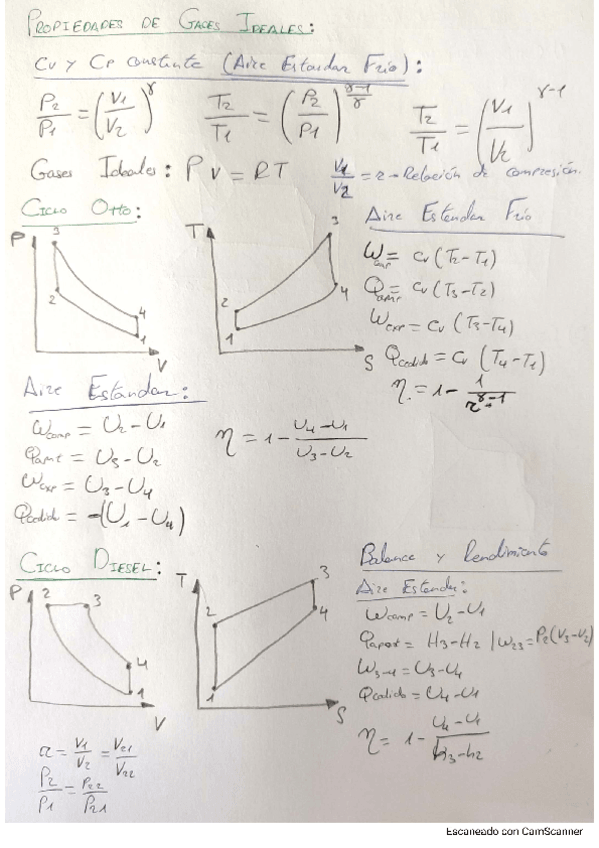 PROPIEDADES DE GASES IDEALES:
Cv y Cp constante (Aire Estandar Frío):
P2/P1 = (V1/V2)^γ   T2/T1 = (P2/P1)^((γ-1)/γ)   T2/T1 = (V1/V2)^(γ-1)
Gases Ideales: Pv = RT   V1/V2 = r → Relación de compresión.
CICLO Otto:   Aire Estandar Frío
P 3 2 4 1 V
T 3 2 4 1 S
Wcomp = cv (T2-T1)
Qapor = cv (T3-T2)
Wexp = cv (T3-T4)
Qcedido = cv (T4-T1)
η = 1 - 1/r^(γ-1)
Aire Estandar:
Wcomp = U2 - U1
Qapor = U3 - U2
Wexp = U3 - U4
Qcedido = -(U1 - U4)
η = 1 - (U4 - U1)/(U3 - U2)
CICLO DIESEL:
P 2 3 4 1 V
T 3 2 4 1 S
Balance y Rendimiento
Aire Estandar:
Wcomp = U2 - U1
Qaport = H3 - H2 / W23 = P2(V3 - V2)
W3-4 = U3 - U4
Qcedido = U4 - U1
η = 1 - (U4 - U1)/(h3 - h2)
r = V1/V2 = Vr1/Vr2
P2/P1 = Pr2/Pr1
Escaneado con CamScanner